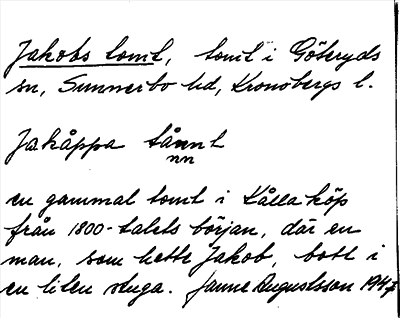 Jakobs tomt, tomt i Göteryds
sn, Sunnerbo hd, Kronobergs l.
Jakåppa tånnt
nn
en gammal tomt i Kålla köp
från 1800-talets början, där en
man, som hette Jakob, bott i
en liten stuga. Janne Augustsson 1947